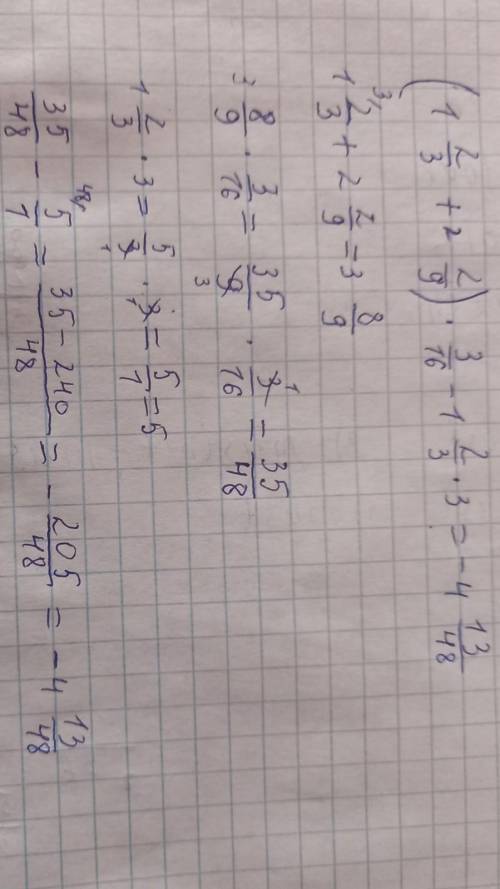 (1 2/3 + 2 2/9) · 3/16 - 1 2/3 · 3 = -4 13/48
1 2/3 ³⁄ + 2 2/9 = 3 8/9
3 8/9 · 3/16 = 35/9 3 · 3/16 1 = 35/48
1 2/3 · 3 = 5/3 1 · 3/1 1 = 5/1 = 5
35/48 - 5/1 ⁴⁸⁄ = 35 - 240/48 = - 205/48 = -4 13/48